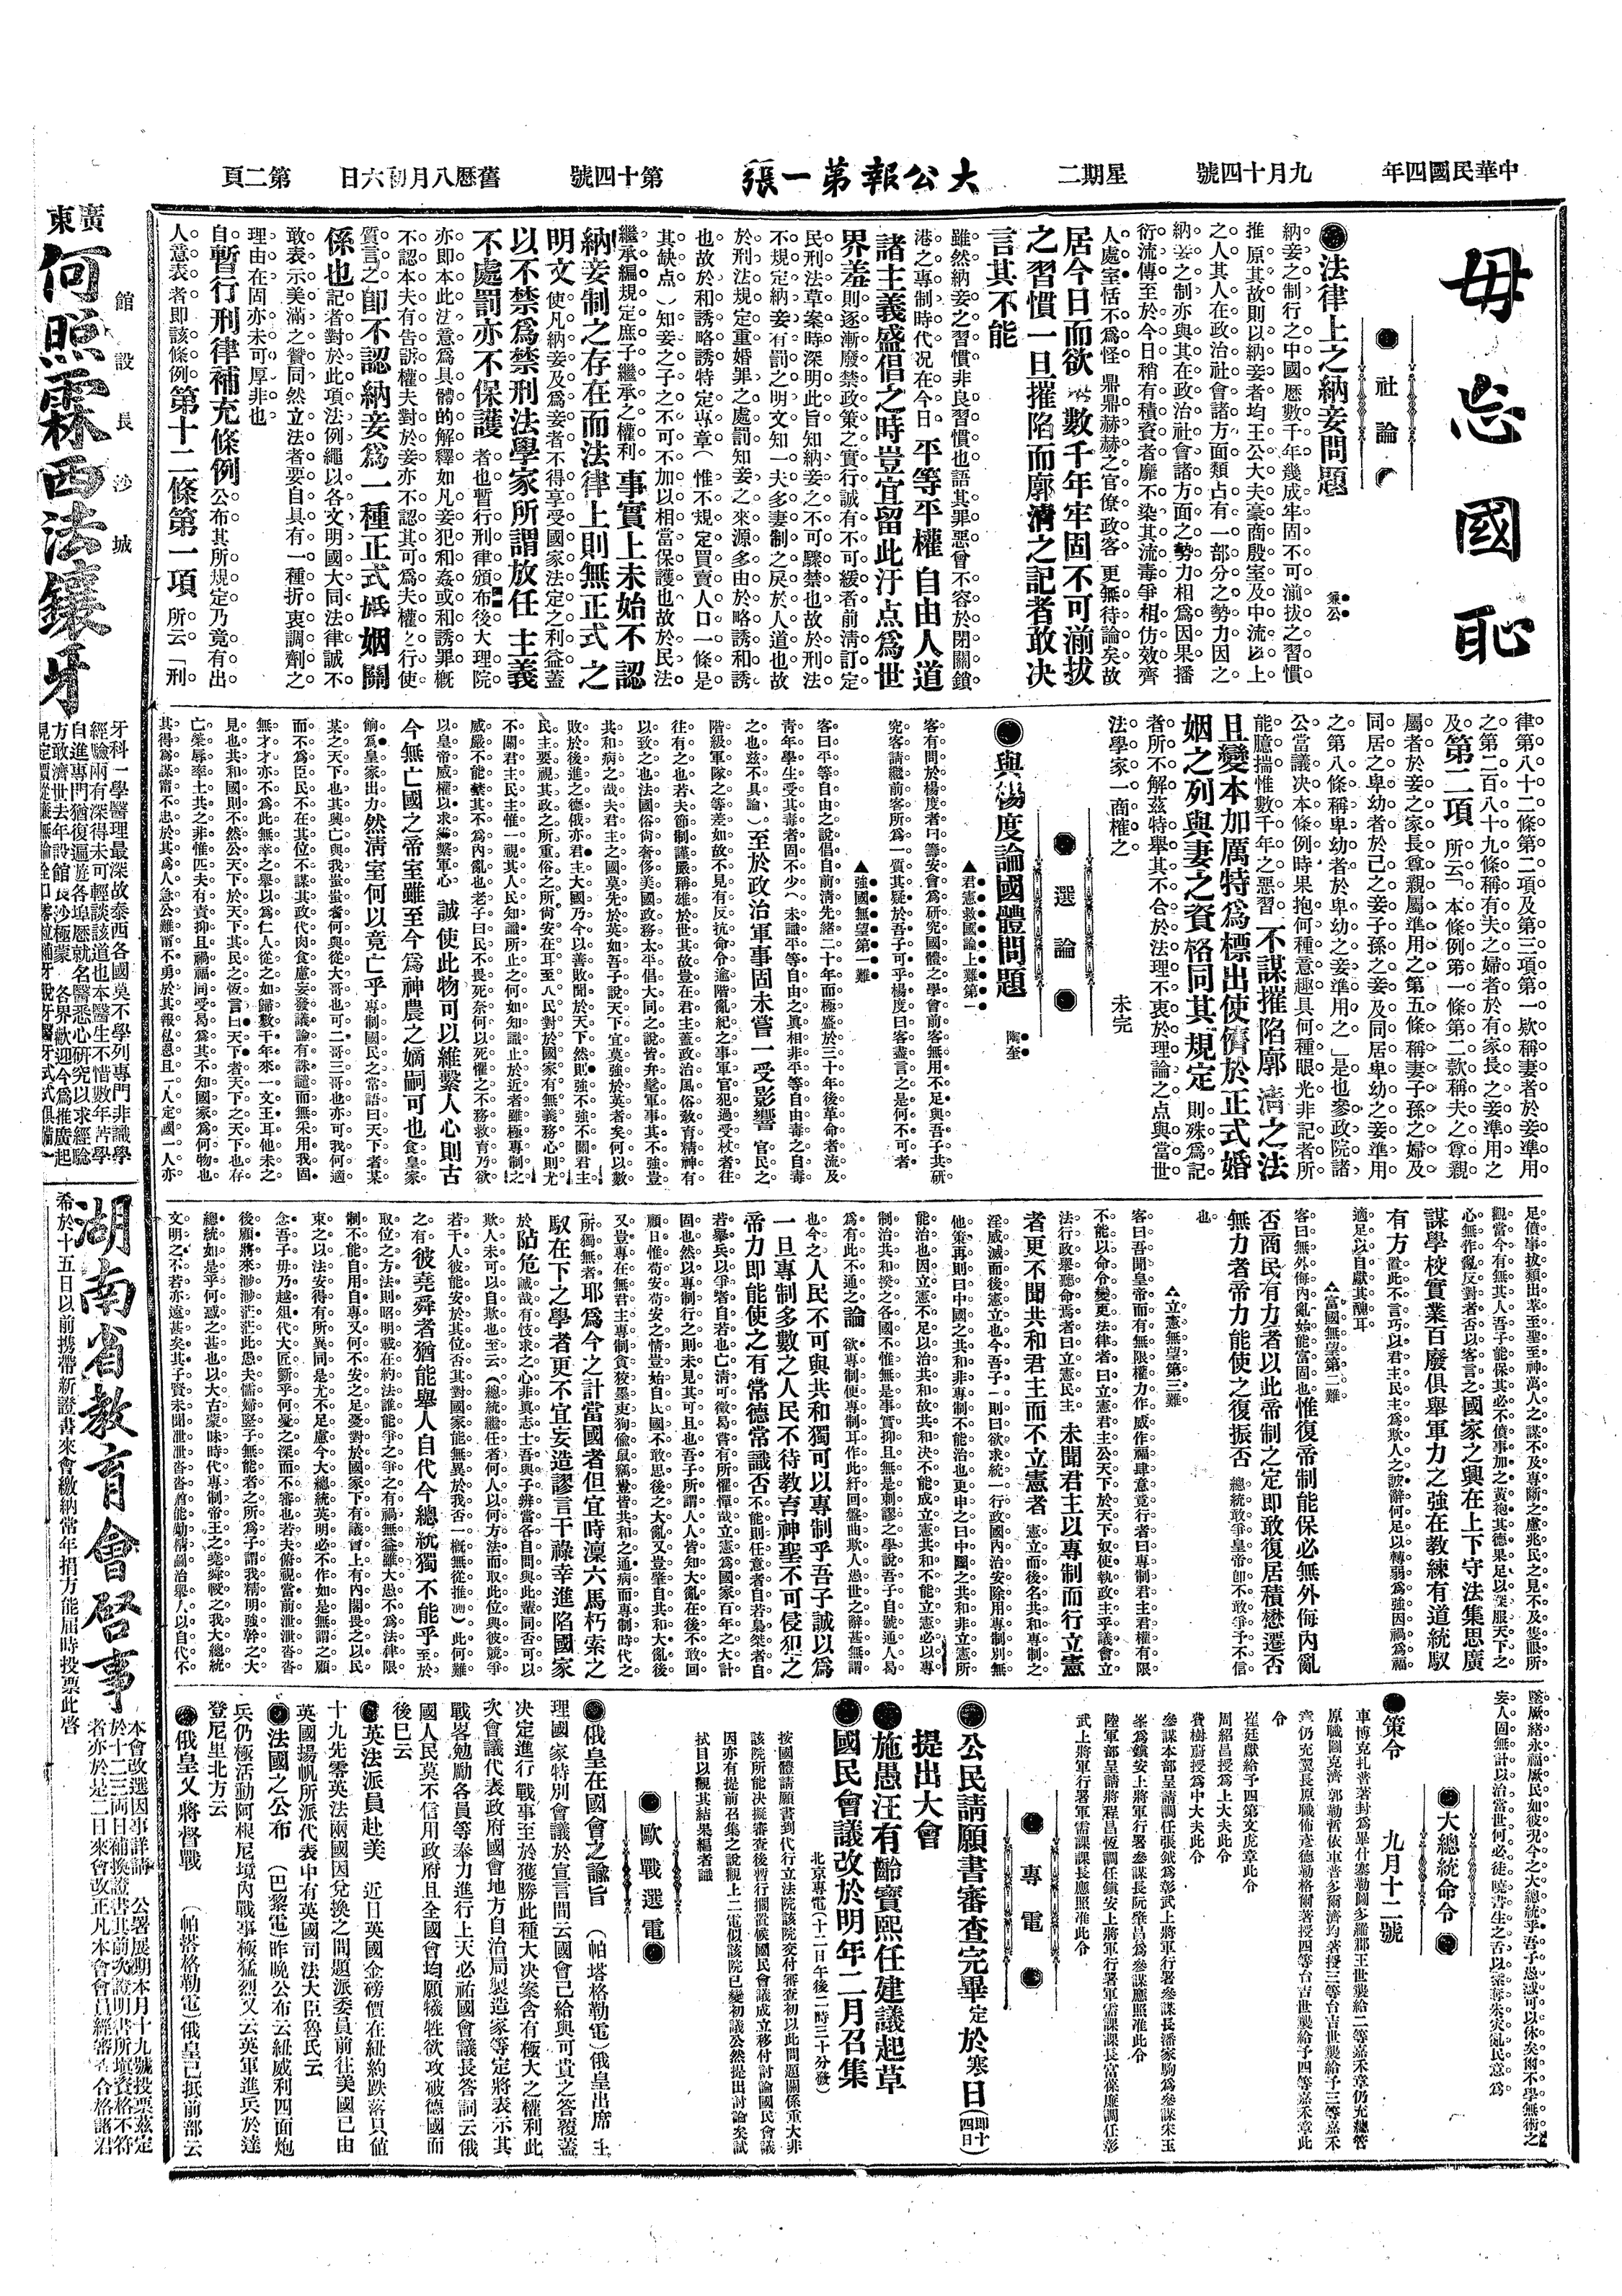 中華民國四年
九月十四號
星期二
大公報第一張
第十四號
舊歷八月初六日
第二頁
毋忘國恥
●社論
●法律上之納妾問題
兼公
納妾之制行之中國歷數千年幾成牢固不可湔拔之習慣
推原其故則以納妾者均王公大夫豪商殷室及中流以上
之人其人在政治社會諸方面類占有一部分之勢力因之
納妾之制亦與其在政治社會諸方面之勢力相為因果播
衍流傳至於今日稍有積資者靡不染其流毒爭相仿效齊
人處室恬不為怪鼎鼎赫赫之官僚政客更無待論矣故
居今日而欲以數千年牢固不可湔拔
之習慣一旦摧陷而廓清之記者敢决
言其不能
雖然納妾之習慣非良習慣也語其罪惡曾不容於閉關鎖
港之專制時代况在今日平等平權自由人道
諸主義盛倡之時豈宜留此汙点為世
界羞則逐漸廢禁政策之實行誠有不可緩者前清訂定
民刑法草案時深明此旨知納妾之不可驟禁也故於刑法
不規定納妾有罰之明文知一夫多妻制之戾於人道也故
於刑法規定重婚罪之處罰知妾之來源多由於略誘和誘
也故於和誘略誘特定專章(惟不規定買賣人口一條是
其缺点)知妾之子之不可不加以相當保護也故於民法
繼承編規定庶子繼承之權利事實上未始不認
納妾制之存在而法律上則無正式之
明文使凡納妾及為妾者不得享受國家法定之利益蓋
以不禁為禁刑法學家所謂放任主義
不處罰亦不保護者也暫行刑律頒布後大理院
亦即本此法意為具體的解釋如凡妾犯和姦或和誘罪概
不認本夫有告訴權夫對於妾亦不認其可為夫權之行使
質言之卽不認納妾為一種正式婚姻關
係也記者對於此項法例繩以各文明國大同法律誠不
敢表示美滿之贊同然立法者要自具有一種折衷調劑之
理由在固亦未可厚非也
自暫行刑律補充條例公布其所規定乃竟有出
人意表者即該條例第十二條第一項所云「刑
律第八十二條第二項及第三項第一欵稱妻者於妾準用
之第二百八十九條稱有夫之婦者於有家長之妾準用之
及第二項所云「本條例第一條第二款稱夫之尊親
屬者於妾之家長尊親屬準用之第五條稱妻子孫之婦及
同居之卑幼者於己之妾子孫之妾及同居卑幼之妾準用
之第八條稱卑幼者於卑幼之妾準用之」是也參政院諸
公當議决本條例時果抱何種意趣具何種眼光非記者所
能臆揣惟數千年之惡習不謀摧陷廓清之法
且變本加厲特為標出使儕於正式婚
姻之列與妻之資格同其規定則殊為記
者所不解茲特舉其不合於法理不衷於理論之点與當世
法學家一商榷之
未完
●選論●
●與楊度論國體問題
陶奎
▲君憲救國論上難第一
客有問於楊度者曰籌安會為研究國體之學會前客無用不足與吾子共研
究客請繼前客所為一質其疑於吾子可乎楊度曰客盡言之是何不可者
▲強國無望第一難
客曰平等自由之說倡自前清先緒二十年而極盛於三十年後革命者流及
青年學生受其毒者固不少(未識平等自由之眞相非平等自由毒之自毒
之也茲不具論)至於政治軍事固未嘗一受影響官民之
階級軍隊之等差如故不見有反抗命令逾階亂紀之事軍官犯過受杖者往
往有之也若夫節制謹嚴稱雄於世其故豈在君主蓋政治風俗敎育精神有
以致之也法國俗尙奢侈美國政務太平倡大同之說皆弁髦軍事其不強豈
共和病之哉夫君主之國莫先於英如吾子說天下宜莫強於英者矣何以數
敗於後進之德俄亦君主大國乃今以善敗聞於天下然則強不強不關君主
民主要視其政之所重俗之所尙安在耳至人民對於國家有無義務心則尤
不關君主民主惟一視其人民知識所止之何如知識止於近者雖極專制之
威嚴不能禁其不為內亂也老子曰民不畏死奈何以死懼之不務救育乃欲
以皇帝威權以求維繫軍心誠使此物可以維繫人心則古
今無亡國之帝室雖至今為神農之嫡嗣可也食皇家
餉為皇家出力然清室何以竟亡乎專制國民之常語曰天下者某
某之天下也其興亡與我蚩蚩者何與從大哥也可二哥三哥也亦可我何適
而不為臣民不在其位不謀其政代肉食慮妄發議論有誅譴而無采用我固
無才才亦不為此無幸之舉以為仁人從之如歸數千年來一文王耳他未之
見也共和國則不然公天下於天下其民之恆言曰天下者天下之天下也存
亡榮辱率土共之非惟匹夫有責抑且禍福同受曷為其不知國家為何物也
其得為謀甯不忠於其為人急公難甯不勇於其報私恩且一人定國一人亦
足僨事拔類出萃至聖至神萬人之謀不及專斷之慮兆民之見不及隻眼所
觀當今有無其人吾子能保其必不僨事加之黃袍其德果足以深服天下之
心無作亂反對者否以客言之國家之興在上下守法集思廣
謀學校實業百廢俱舉軍力之強在教練有道統馭
有方置此不言巧以君主民主為欺人之詖辭何足以轉弱為強因禍為福
適足以自獻其醜耳
▲富國無望第二難
客曰無外侮內亂始能富固也惟復帝制能保必無外侮內亂
否商民有力者以此帝制之定即敢復居積懋遷否
無力者帝力能使之復振否總統敢爭皇帝卽不敢爭予不信
也
▲立憲無望第三難
客曰吾聞皇帝而有無限權力作威作福肆意竟行者曰專制君主君權有限
不能以命令變更法律者曰立憲君主公天下於天下奴使執政主乎議會立
法行政舉聽命焉者曰立憲民主未聞君主以專制而行立憲
者更不聞共和君主而不立憲者憲立而後名共和專制之
淫威滅而後憲立也今吾子一則曰欲求統一行政國內治安除用專制別無
他策再則曰中國之共和非專制不能治也更申之曰中國之共和非立憲所
能治也因立憲不足以治共和故共和决不能成立憲共和不能立憲必以專
制治共和揆之各國不惟無是事實抑且無是刺謬之學說吾子自號通人曷
為有此不通之論欲專制便專制耳作此紆回盤曲欺人愚世之辭甚無謂
也今之人民不可與共和獨可以專制乎吾子誠以為
一旦專制多數之人民不待教育神聖不可侵犯之
帝力即能使之有常德常識否不能則任意者自若梟桀者自
若舉兵以爭者自若也亡清可徵曷嘗有所懼憚哉立憲為國家百年之大計
固也然以專制行之則未見其可且也吾子所謂人人皆知大亂在後不敢回
願日惟苟安苟安之情豈始自民國不敢思後之大亂又豈肇自共和大亂後
又豈專在無君主專制貪狡墨吏狗偸鼠竊豈皆共和之通病而專制時代之
所獨無者耶為今之計當國者但宜時凜六馬朽索之
馭在下之學者更不宜妄造謬言干祿幸進陷國家
於阽危誠哉有忮求之心非眞志士吾與子辨當各自問與此輩同否可以
欺人未可以自欺也至云(總統繼任者何人以何方法而取此位與彼競爭
若干人彼能安於其位否其對國家能無異於我否一槪無從推測)此何難
之有彼堯舜者猶能舉人自代今總統獨不能乎至於
取位之方法則昭明載在約法誰能爭之爭之有禍無益雖大愚不為法律限
制不能自用自專又何不安之足憂對於國家下有議會上有內閣畏之以民
束之以法安得有所異同是尤不足慮今大總統英明必不作如是無謂之願
念吾子毋乃越俎代大匠斲乎何憂之深而不審也若夫俯視當前泄泄沓沓
後顧將來渺渺茫茫此愚夫儒婦竪子無能者之所為子謂我精明強幹之大
總統如是乎何惑之甚也以大古蒙昧時代專制帝王之堯舜較之我大總統
文明之不若亦遠甚矣其子賢未聞泄泄沓沓前能勤精圖治舉人以自代不
墜厥緒永福厥民如彼况今之大總統乎吾子愚誠可以休矣爾不學無術之
妄人固無計以治當世何必徒曉書生之舌以紫奪朱尖亂民意為
●大總統命令●
●策令
九月十二號
車博克扎普著封為畢什塞勒圖多羅郡王世襲給二等嘉禾章仍充總管
原職圖克濟郭勒暫依車普多爾濟均著授三等台吉世襲給予三等嘉禾
章仍充翼長原職佈彥德勒格爾著授四等台吉世襲給予四等嘉禾章此
令
崔廷獻給予四第文虎章此令
周紹昌授為上大夫此令
費樹蔚授為中大夫此令
參謀本部呈請調任張鉞為彰武上將軍行署參謀長潘家駒為參謀宋玉
峯為鎭安上將軍行署參謀長阮肇昌為參謀應照准此令
陸軍部呈請將程昌恆調任鎮安上將軍行署軍需課課長富葆廉調任彰
武上將軍行署軍需課課長應照准此令
●專電●
●公民請願書審查完畢定於寒日(即十四日)
提出大會
●施愚汪有齡寶熙任建議起草
●國民會議改於明年二月召集
北京專電(十二日午後二時三十分發)
按國體請願書到代行立法院該院交付審查初以此問題關係重大非
該院所能决擬審查後暫行擱置候國民會議成立移付討論國民會議
因亦有提前召集之說觀上二電似該院已變初議公然提出討論矣試
拭目以觀其結果編者識
●歐戰選電●
●俄皇在國會之諭旨
(帕塔格勒電)俄皇出席主
理國家特別會議於宣言間云國會已給與可貴之答覆蓋
决定進行戰事至於獲勝此種大决案含有極大之權利此
次會議代表政府國會地方自治局製造家等定將表示其
戰畧勉勵各員等奉力進行上天必祐國會議長答詞云俄
國人民莫不信用政府且全國會均願犧牲欲攻破德國而
後已云
●英法派員赴美
近日英國金磅價在紐約跌落只値
十九先零英法兩國因兌換之問題派委員前往美國已由
英國揚帆所派代表中有英國司法大臣魯氏云
●法國之公布
(巴黎電)昨晚公布云紐威利四面炮
兵仍極活動阿根尼境內戰事極猛烈又云英軍進兵於達
登尼里北方云
●俄皇又將督戰
(帕塔格勒電)俄皇已抵前部云
廣東
何照霖西法鑲牙
館設長沙城
牙科一學醫理最深故泰西各國莫不學列專門非識學
經驗兩有深得未可輕談該道也本醫生不惜數年苦學
自進專門猶復遍遊各埠歷就名醫悉心研究以求經驗
方敢濟世去年設館長沙極蒙各界歡迎今為推廣起
湖南省教育會啓事
本會改選因事詳請公署展期本月十九號投票茲定
於十二三両日補換證書其前次證明書所塡資格不符
者亦於是二日來會改正凡本會會員經審查合格諸君
希於十五日以前携帶新證書來會繳納常年捐方能屆時投票此啓